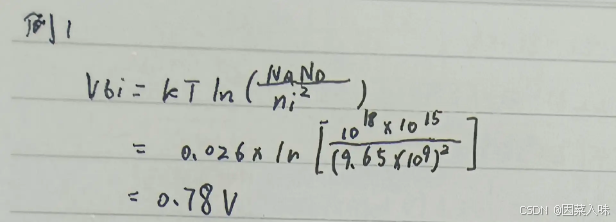 例1
Vbi = kT ln (NAND/ni²)
= 0.026 × ln [10¹⁸ × 10¹⁵/(9.65 × 10⁹)²]
= 0.78 V
CSDN @因菜入味